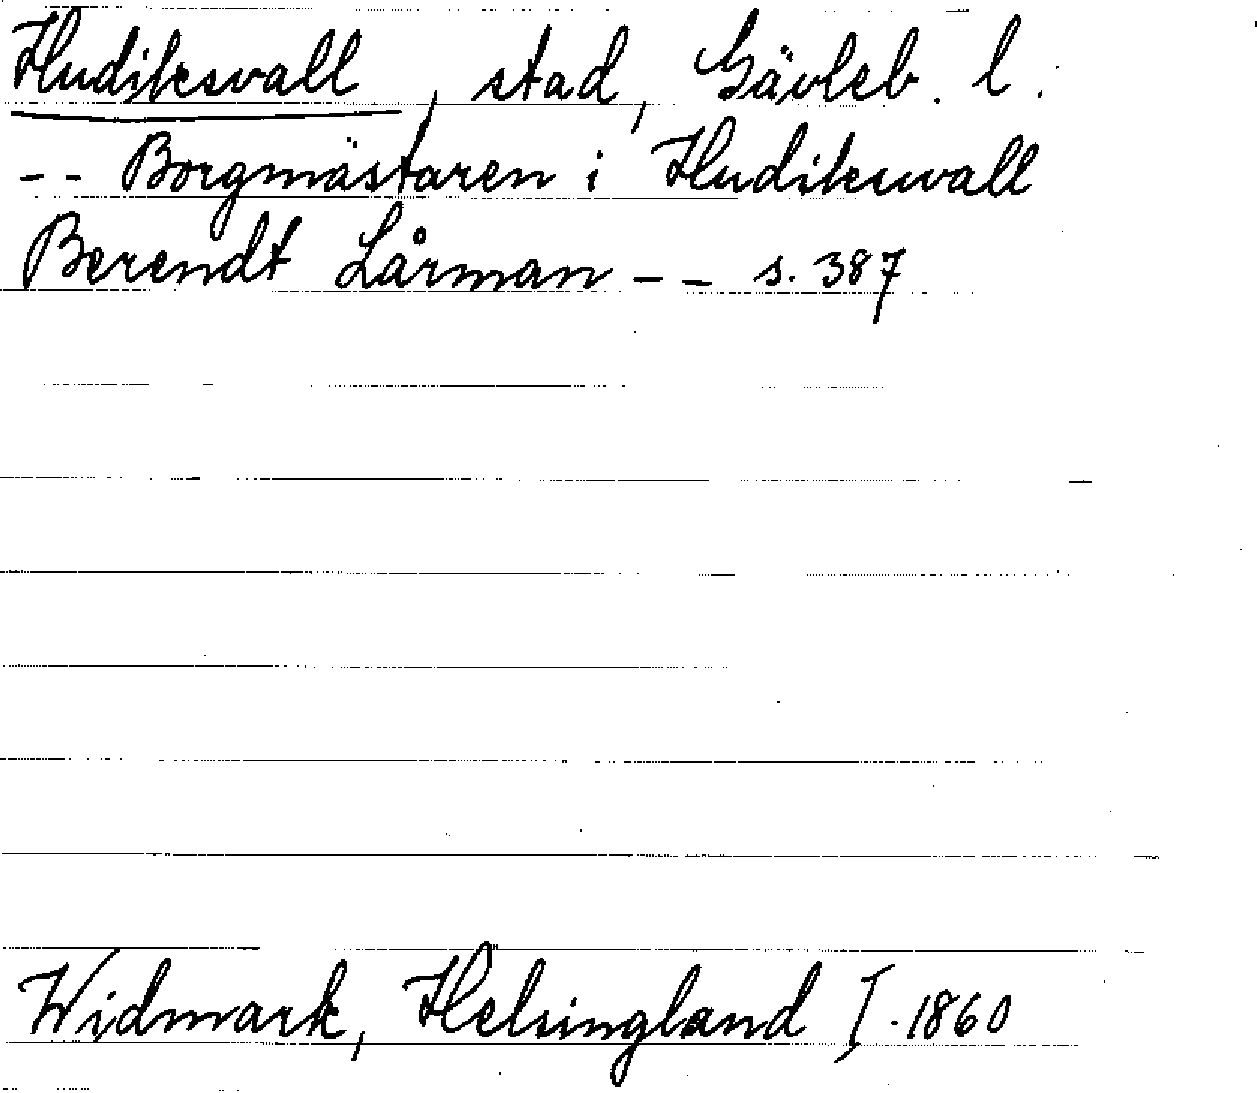 Hudiksvall, stad, Gävleb. l.
-- Borgmästaren i Hudikswall
Berendt Lårman -- s. 387
Widmark, Helsingland I. 1860